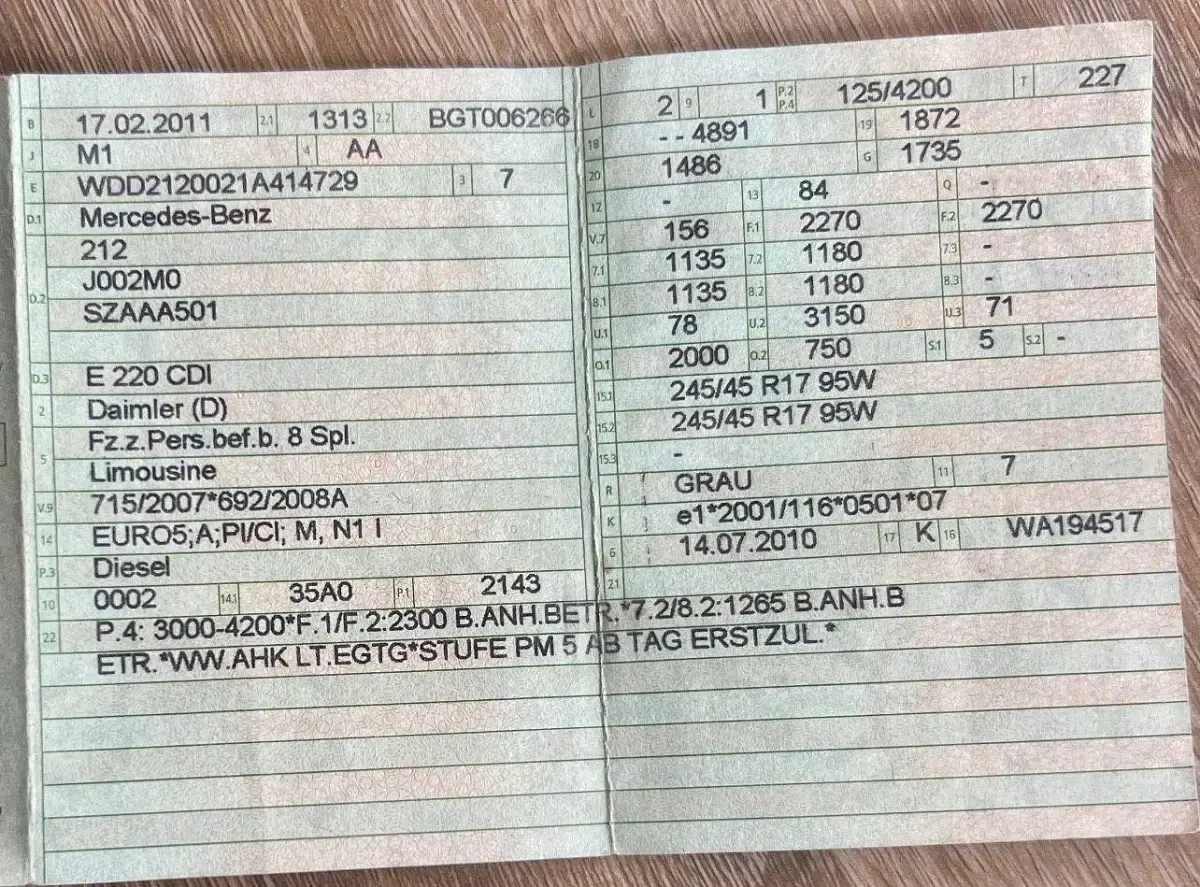 B 17.02.2011 2.1 1313 2.2 BGT006266
J M1 4 AA
E WDD2120021A414729 3 7
D.1 Mercedes-Benz
D.2 212
J002M0
SZAAA501
D.3 E 220 CDI
2 Daimler (D)
5 Fz.z.Pers.bef.b. 8 Spl.
Limousine
V.9 715/2007*692/2008A
14 EURO5;A;PI/CI; M, N1 I
P.3 Diesel
10 0002 14.1 35A0 P.1 2143
L 2 9 1 P.2 P.4 125/4200 T 227
18 - - 4891 19 1872
20 1486 G 1735
12 - 13 84 Q -
V.7 156 F.1 2270 F.2 2270
7.1 1135 7.2 1180 7.3 -
8.1 1135 8.2 1180 8.3 -
U.1 78 U.2 3150 U.3 71
O.1 2000 O.2 750 S.1 5 S.2 -
15.1 245/45 R17 95W
15.2 245/45 R17 95W
15.3 -
R GRAU 11 7
K e1*2001/116*0501*07
6 14.07.2010 17 K 16 WA194517
21
22 P.4: 3000-4200*F.1/F.2:2300 B.ANH.BETR.*7.2/8.2:1265 B.ANH.B
ETR.*WW.AHK LT.EGTG*STUFE PM 5 AB TAG ERSTZUL.*